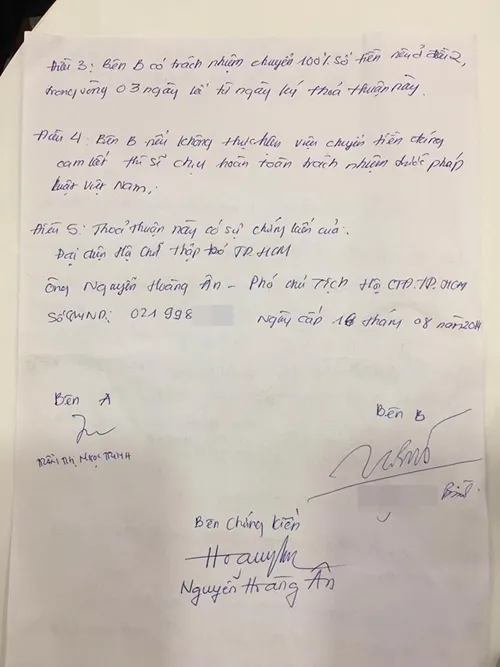 Điều 3: Bên B có trách nhiệm chuyển 100% số tiền nêu ở điều 2,
trong vòng 03 ngày kể từ ngày ký thoả thuận này.
Điều 4: Bên B nếu không thực hiện việc chuyển tiền đúng
cam kết thì sẽ chịu hoàn toàn trách nhiệm dưới pháp
luật Việt Nam.
Điều 5: Thoả thuận này có sự chứng kiến của:
Đại diện Hội Chữ thập đỏ TP.HCM
Ông Nguyễn Hoàng Ân - Phó chủ tịch Hội CTĐ.TP.HCM
Số CMND: 021998 Ngày cấp 16 tháng 08 năm 2011
Bên A
Bên B
TRẦN THỊ NGỌC TRINH
Bên Chứng kiến
Nguyễn Hoàng Ân